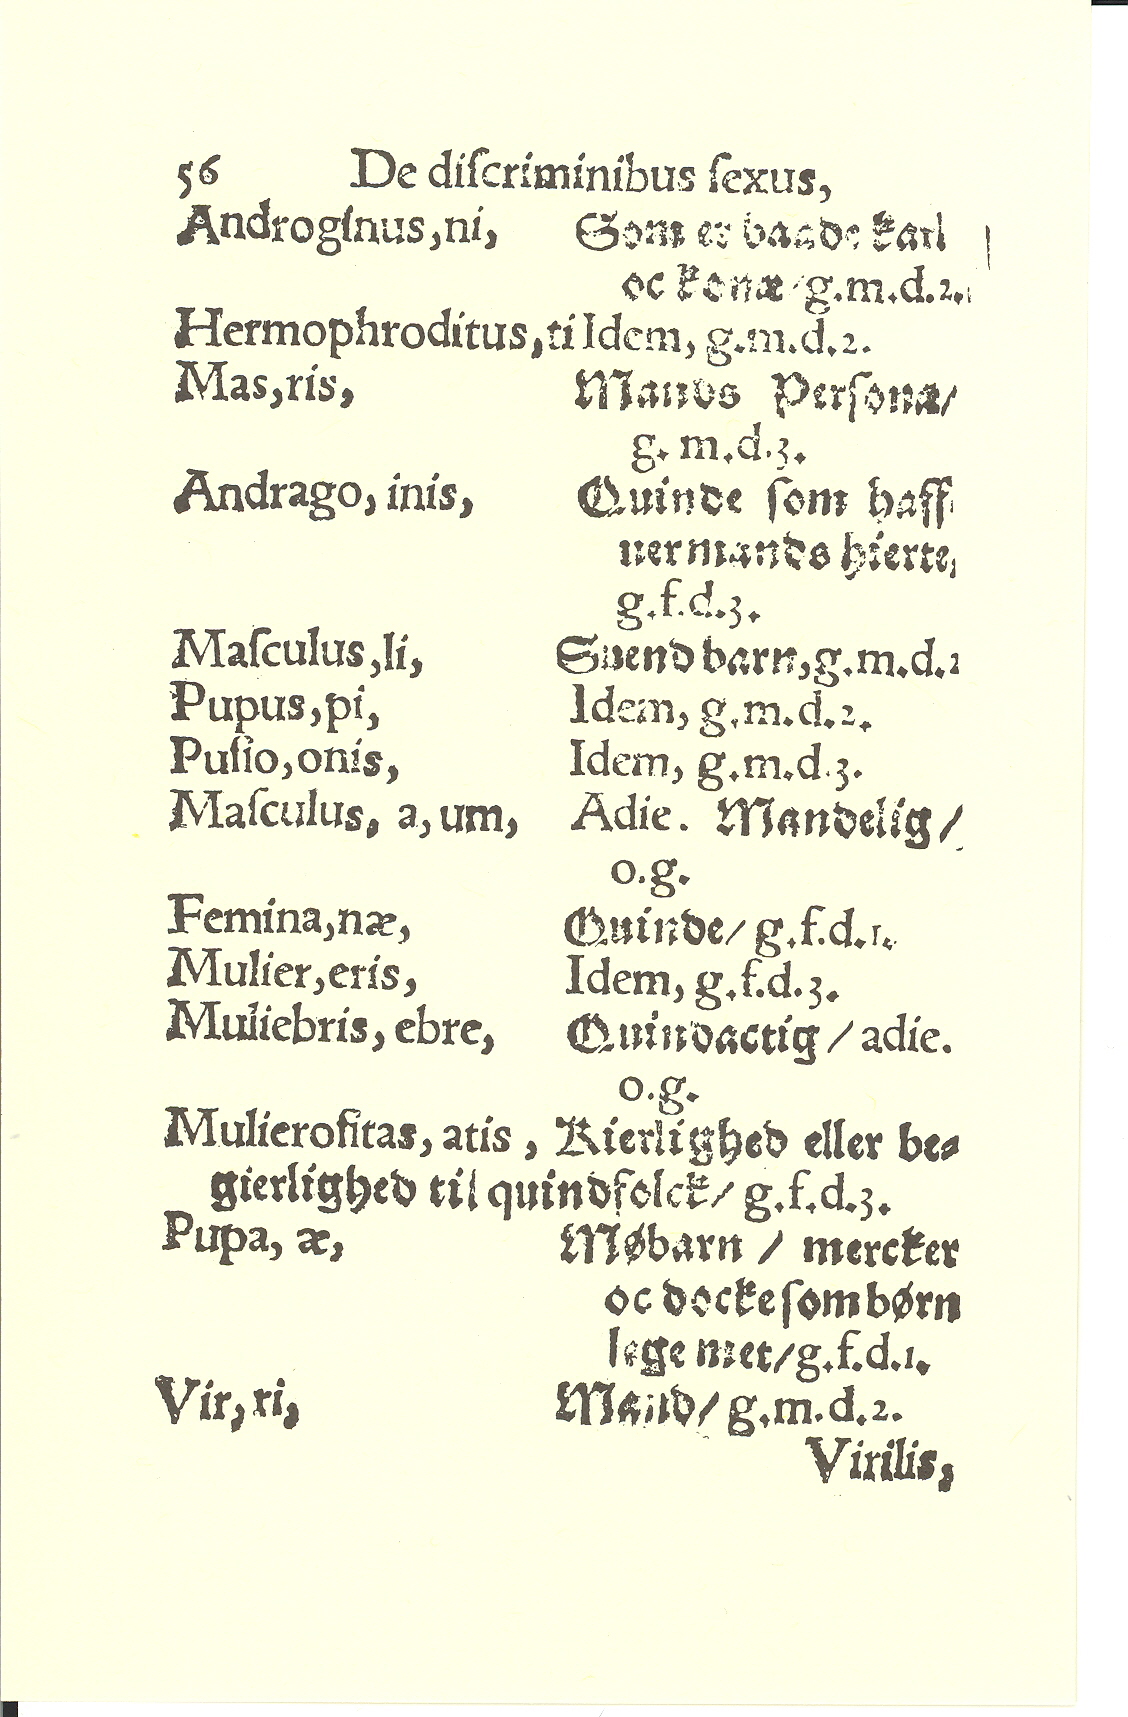 56 De diſcriminibus ſexus,
Androginus,ni, Som er baade karl
oc konæ/g.m.d.2.
Hermophroditus,ti Idem, g.m.d.2.
Mas,ris, Mands Perſonæ/
g. m.d.3.
Andrago, inis, Quinde ſom haff
uer mands hierte,
g.f.d.3.
Maſculus,li, Suend barn,g.m.d.2
Pupus,pi, Idem, g.m.d.2.
Puſio,onis, Idem, g.m.d.3.
Maſculus, a,um, Adie. Mandelig/
o.g.
Femina,næ, Quinde/ g.f.d.1.
Mulier,eris, Idem, g.f.d.3.
Muliebris, ebre, Quindactig / adie.
o.g.
Mulieroſitas, atis , Kierlighed eller be⸗
gierlighed til quindfolck/ g.f.d.3.
Pupa, æ, Møbarn / mercker
oc docke ſom børn
lege met/g.f.d.1.
Vir, ri, Mand/ g.m.d.2.
Virilis,